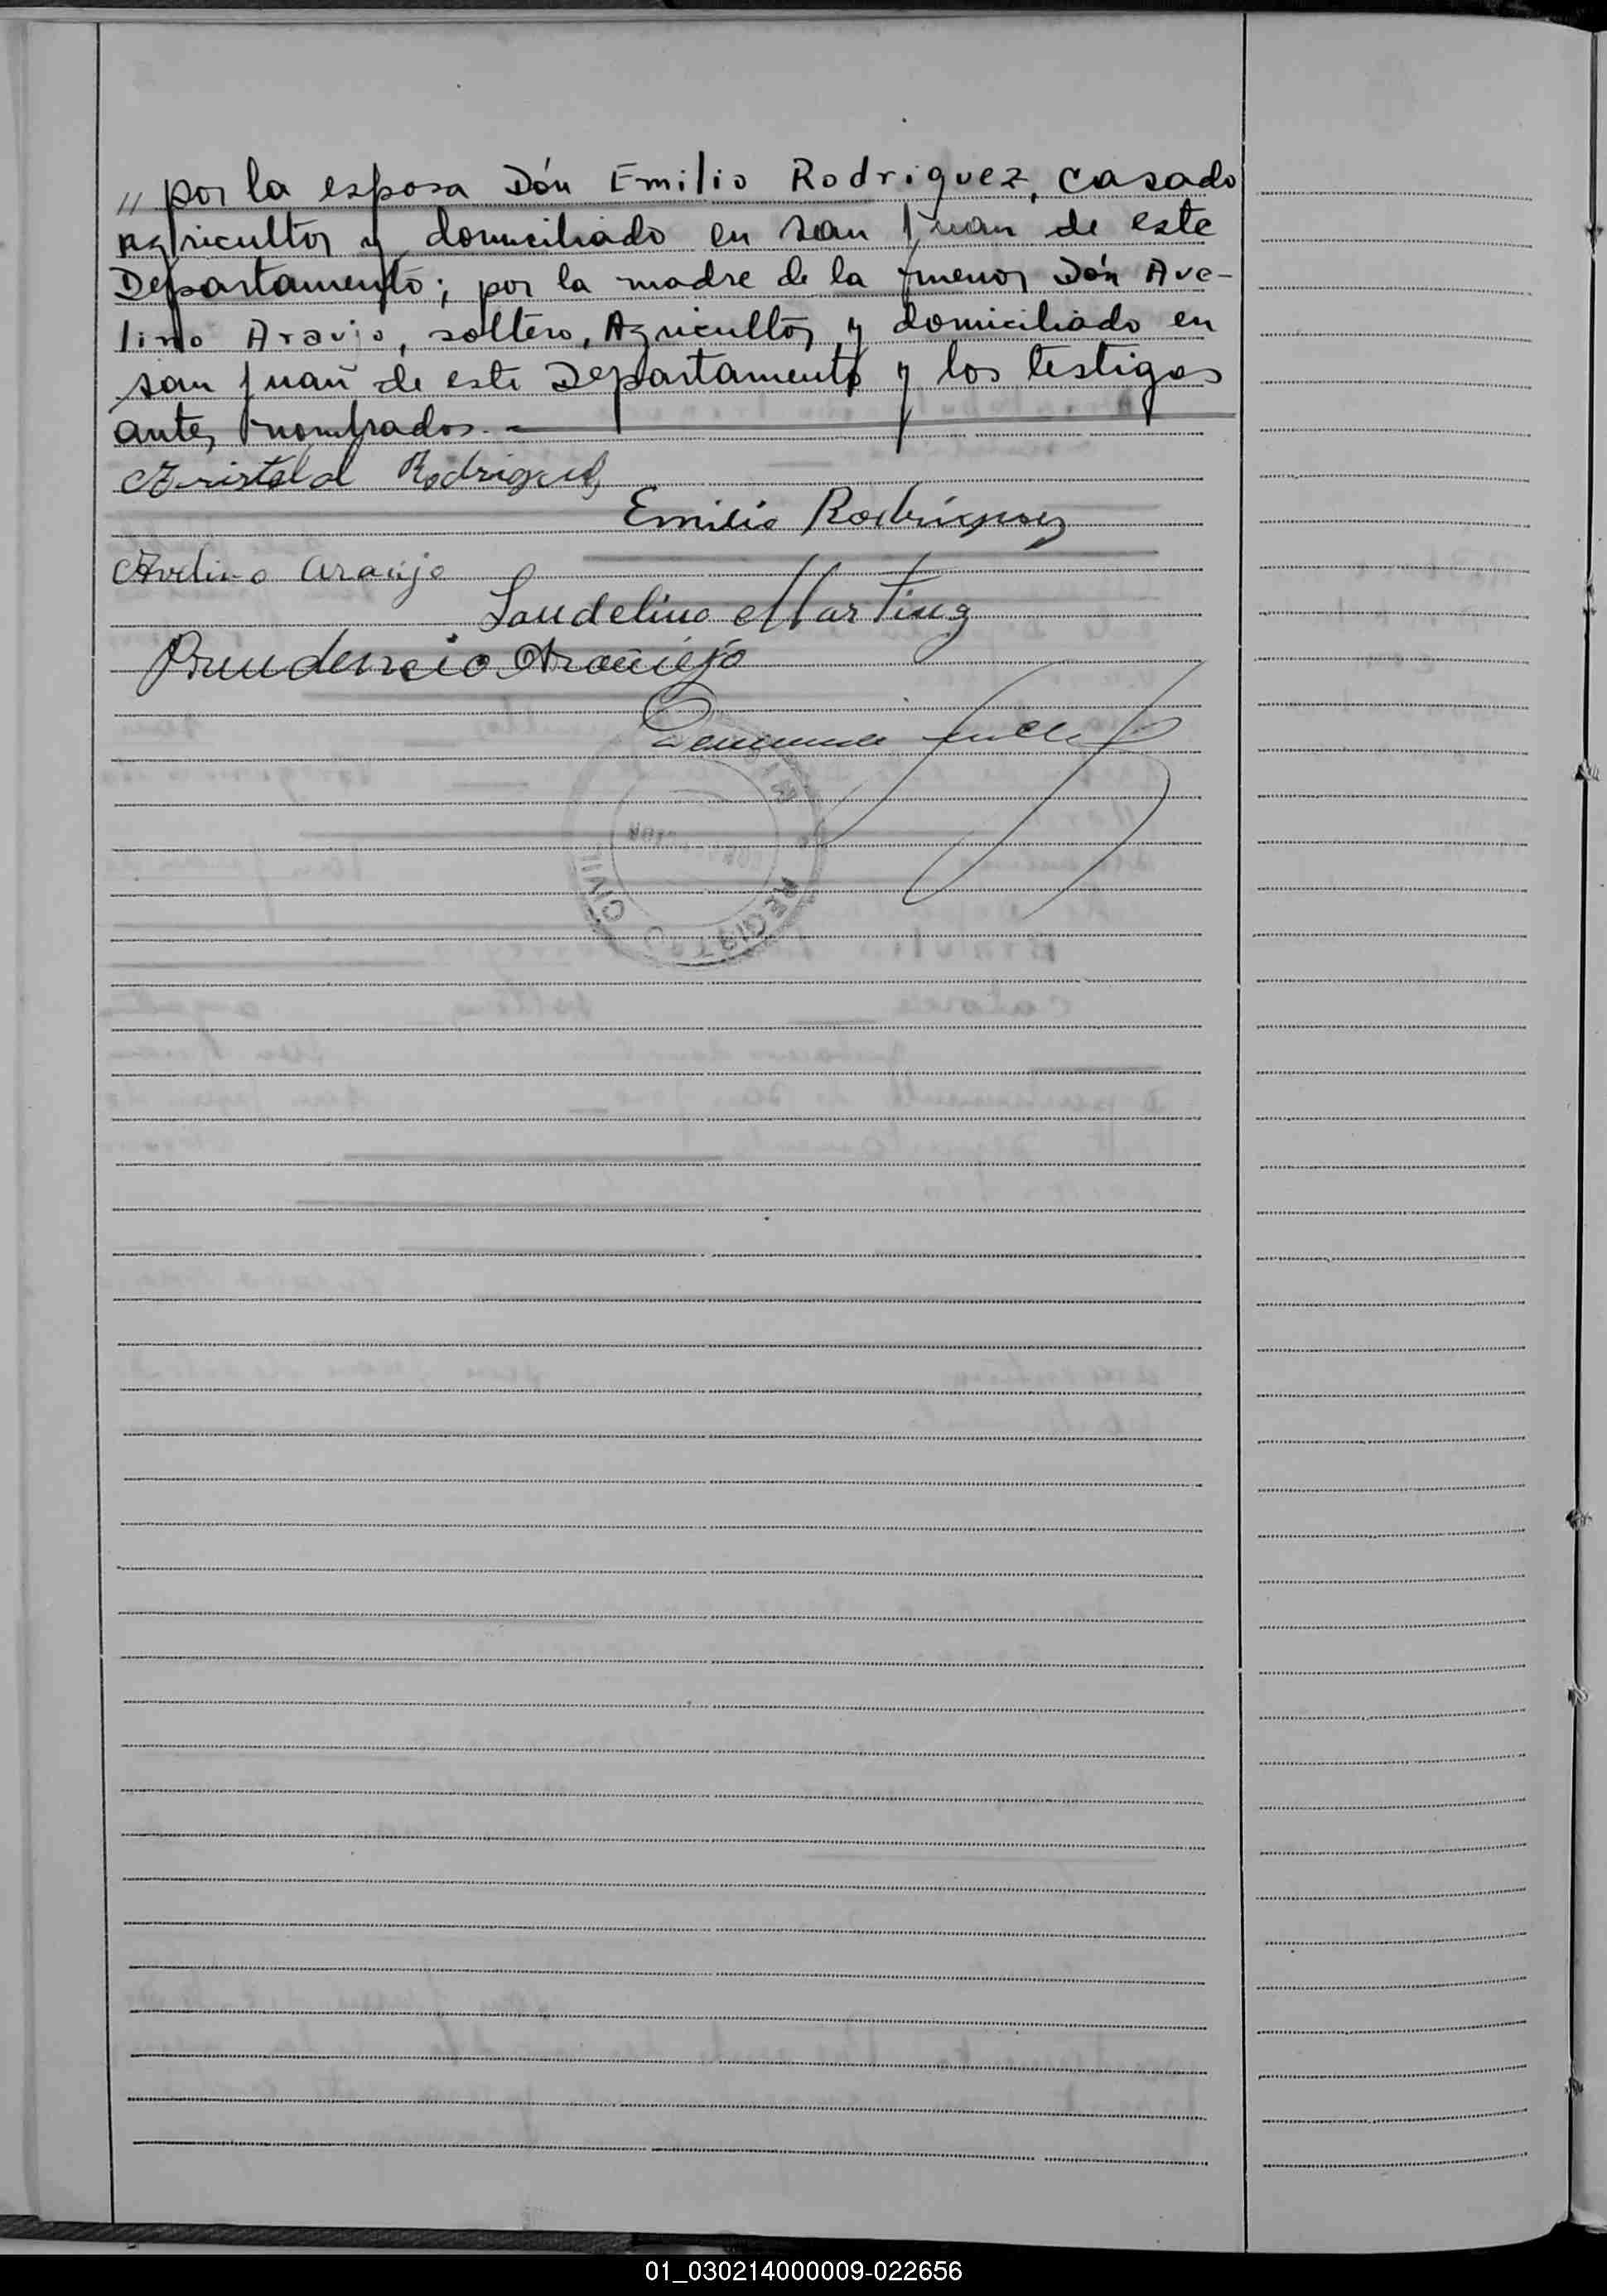 " por la esposa Dón Emilio Rodriguez, casado
agricultor y domiciliado en san Juan de este
Departamento; por la madre de la menor Dón Ave-
lino Araujo, soltero, Agricultor y domiciliado en
san Juan de este Departamento y los testigos
antes nombrados.-
Rodriguez
Emilio Rodriguez
Avelino Araujo
Laudelino Martinez
Prudencio Araujo
REGISTRO CIVIL
01_030214000009-022656